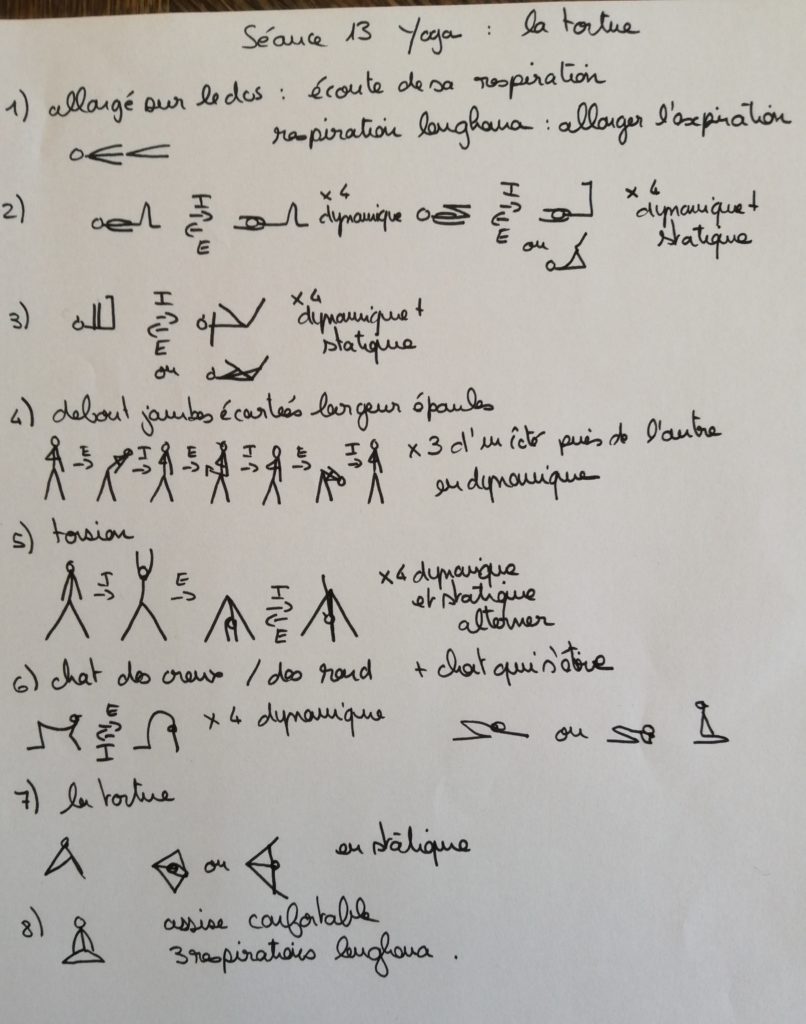 Séance 13 Yoga : la tortue
1) allongé sur le dos : écoute de sa respiration
respiration langhana : allonger l'expiration
2) I E x4 dynamique I E ou x4 dynamique + statique
3) I E ou x4 dynamique + statique
4) debout jambes écartées largeur épaules
E I E I E I x3 d'un côté puis de l'autre
en dynamique
5) torsion
I E I E x4 dynamique
et statique
alterner
6) chat dos creux / dos rond + chat qui s'étire
E I x4 dynamique ou
7) la tortue
ou en statique
8) assise confortable
3 respirations langhana .